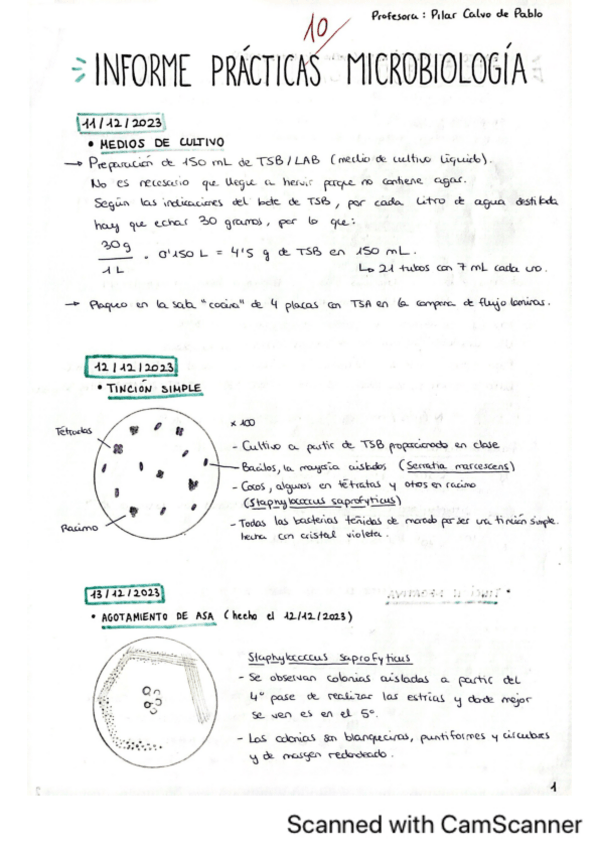 Profesora: Pilar Calvo de Pablo
10
INFORME PRÁCTICAS MICROBIOLOGÍA
11/12/2023
• MEDIOS DE CULTIVO
→ Preparación de 150 mL de TSB/LAB (medio de cultivo líquido).
No es necesario que llegue a hervir porque no contiene agar.
Según las indicaciones del bote de TSB, por cada litro de agua destilada
hay que echar 30 gramos, por lo que:
30 g
1 L
· 0'150 L = 4'5 g de TSB en 150 mL.
↳ 21 tubos con 7 mL cada uno.
→ Plaqueo en la sala "cocina" de 4 placas con TSA en la campana de flujo laminar.
12/12/2023
• TINCIÓN SIMPLE
Tétradas
Racimo
x 100
- Cultivo a partir de TSB proporcionado en clase
- Bacilos, la mayoría aislados (Serratia marcescens)
- Cocos, algunos en tétratas y otros en racimo
(Staphylococcus saprofyticus)
- Todas las bacterias teñidas de morado por ser una tinción simple
hecha con cristal violeta.
13/12/2023
• AGOTAMIENTO DE ASA (hecho el 12/12/2023)
Staphylococcus saprofyticus
- Se observan colonias aisladas a partir del
4º pase de realizar las estrías y donde mejor
se ven es en el 5º.
- Las colonias son blanquecinas, puntiformes y circulares
y de margen redondeado.
1
Scanned with CamScanner